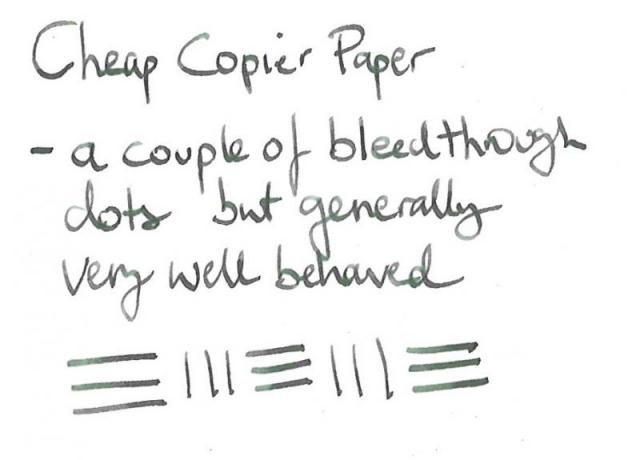 Cheap Copier Paper
- a couple of bleedthrough
dots but generally
very well behaved